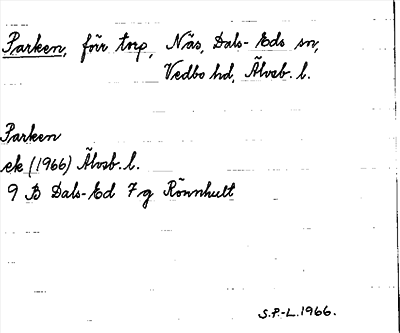 Parken, förr torp, Näs, Dals-Eds sn,
Vedbo hd, Älvsb. l.
Parken
ek (1966) Älvsb. l.
9 B Dals-Ed 7 g Rönnhult
S.P.-L. 1966.